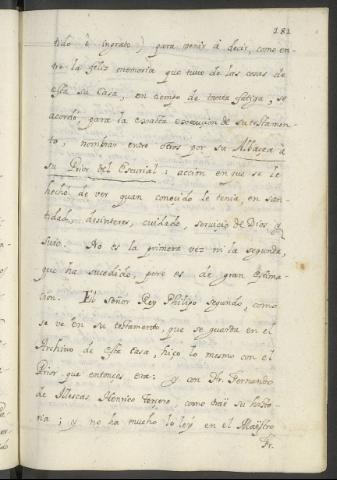 181
tido è ingrato) para venir à decir, como en-
tre la feliz memoria que tuvo de las cosas de
esta su Casa, en tiempo de tanta fatiga, se
acordó para la exacta execucion de su testamen-
to, nombrar entre otros por su Albacea à
su Prior del Escurial: accion en que se le
hechó de ver quan conocido le tenia, en san-
tidad, desinteres, cuidado, servicio de Dios y
suio. No es la primera vez ni la segunda,
que ha sucedido, pero es de gran estima-
cion. El Señor Rey Philipo Segundo, como
se ve en su testamento, que se guarda en el
Archivo de esta Casa, hiço lo mesmo con el
Prior que entonces era: y con Fr. Fernando
de Illescas Henrico Tercero, como trae su histo-
ria; y no ha mucho lo leý en el Maestro
Fr.